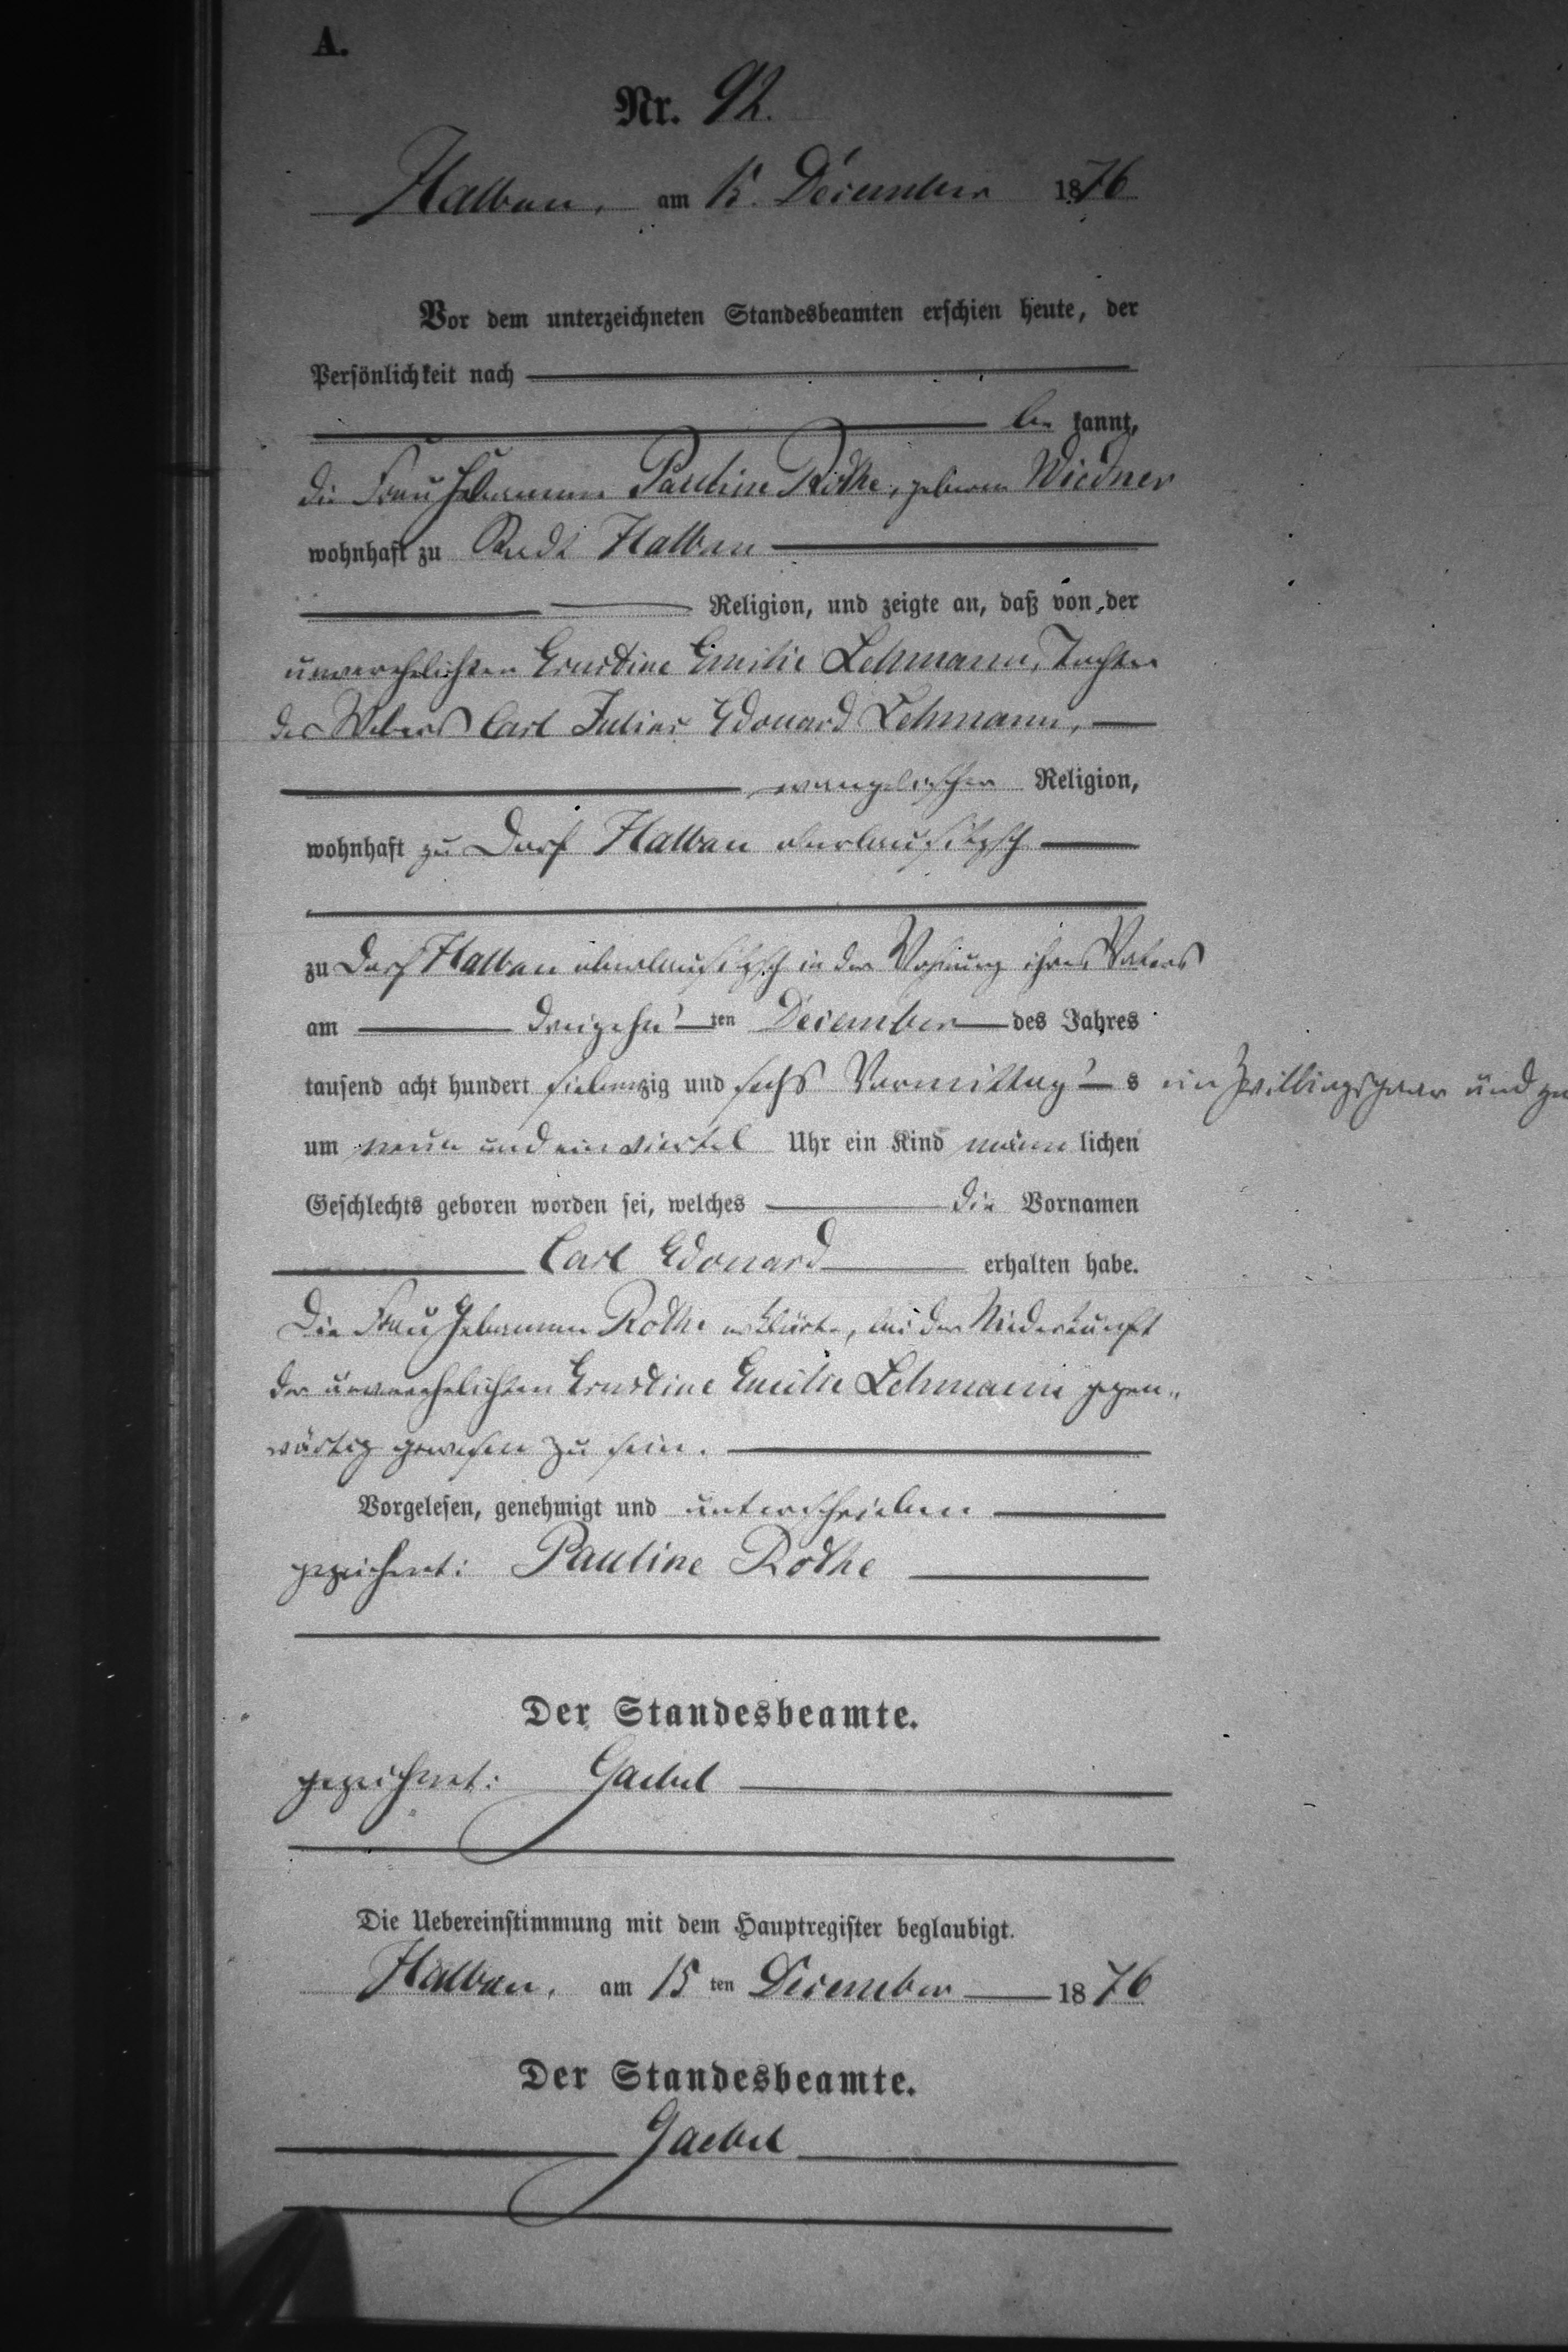 A.
Nr. 92.
Halbau, am 15. December 1876
Vor dem unterzeichneten Standesbeamten erschien heute, der
Persönlichkeit nach
be kannt,
die Frau Hebamme Pauline Rothe, geborene Wiedner
wohnhaft zu Stadt Halbau
Religion, und zeigte an, daß von der
unverehelichten Ernstine Emilie Lehmann, Tochter
des Webers Carl Julius Edouard Lehmann,
evangelischer Religion,
wohnhaft zu Dorf Halbau oberlausitzsch
zu Dorf Halbau oberlausitzsch in der Wohnung ihres Vaters
am dreizehn ten December des Jahres
tausend acht hundert siebenzig und sechs Vormittag s ein Zwillingspaar und
um neun und ein viertel Uhr ein Kind männ lichen
Geschlechts geboren worden sei, welches die Vornamen
Carl Edouard erhalten habe.
Die Frau Hebamme Rothe erklärte, bei der Niederkunft
der unverehelichten Ernstine Emilie Lehmann gegen-
wärtig gewesen zu sein.
Vorgelesen, genehmigt und unterschrieben
gezeichnet: Pauline Rothe
Der Standesbeamte.
gezeichnet: Gaebel
Die Uebereinstimmung mit dem Hauptregister beglaubigt.
Halbau, am 15 ten December 1876
Der Standesbeamte.
Gaebel